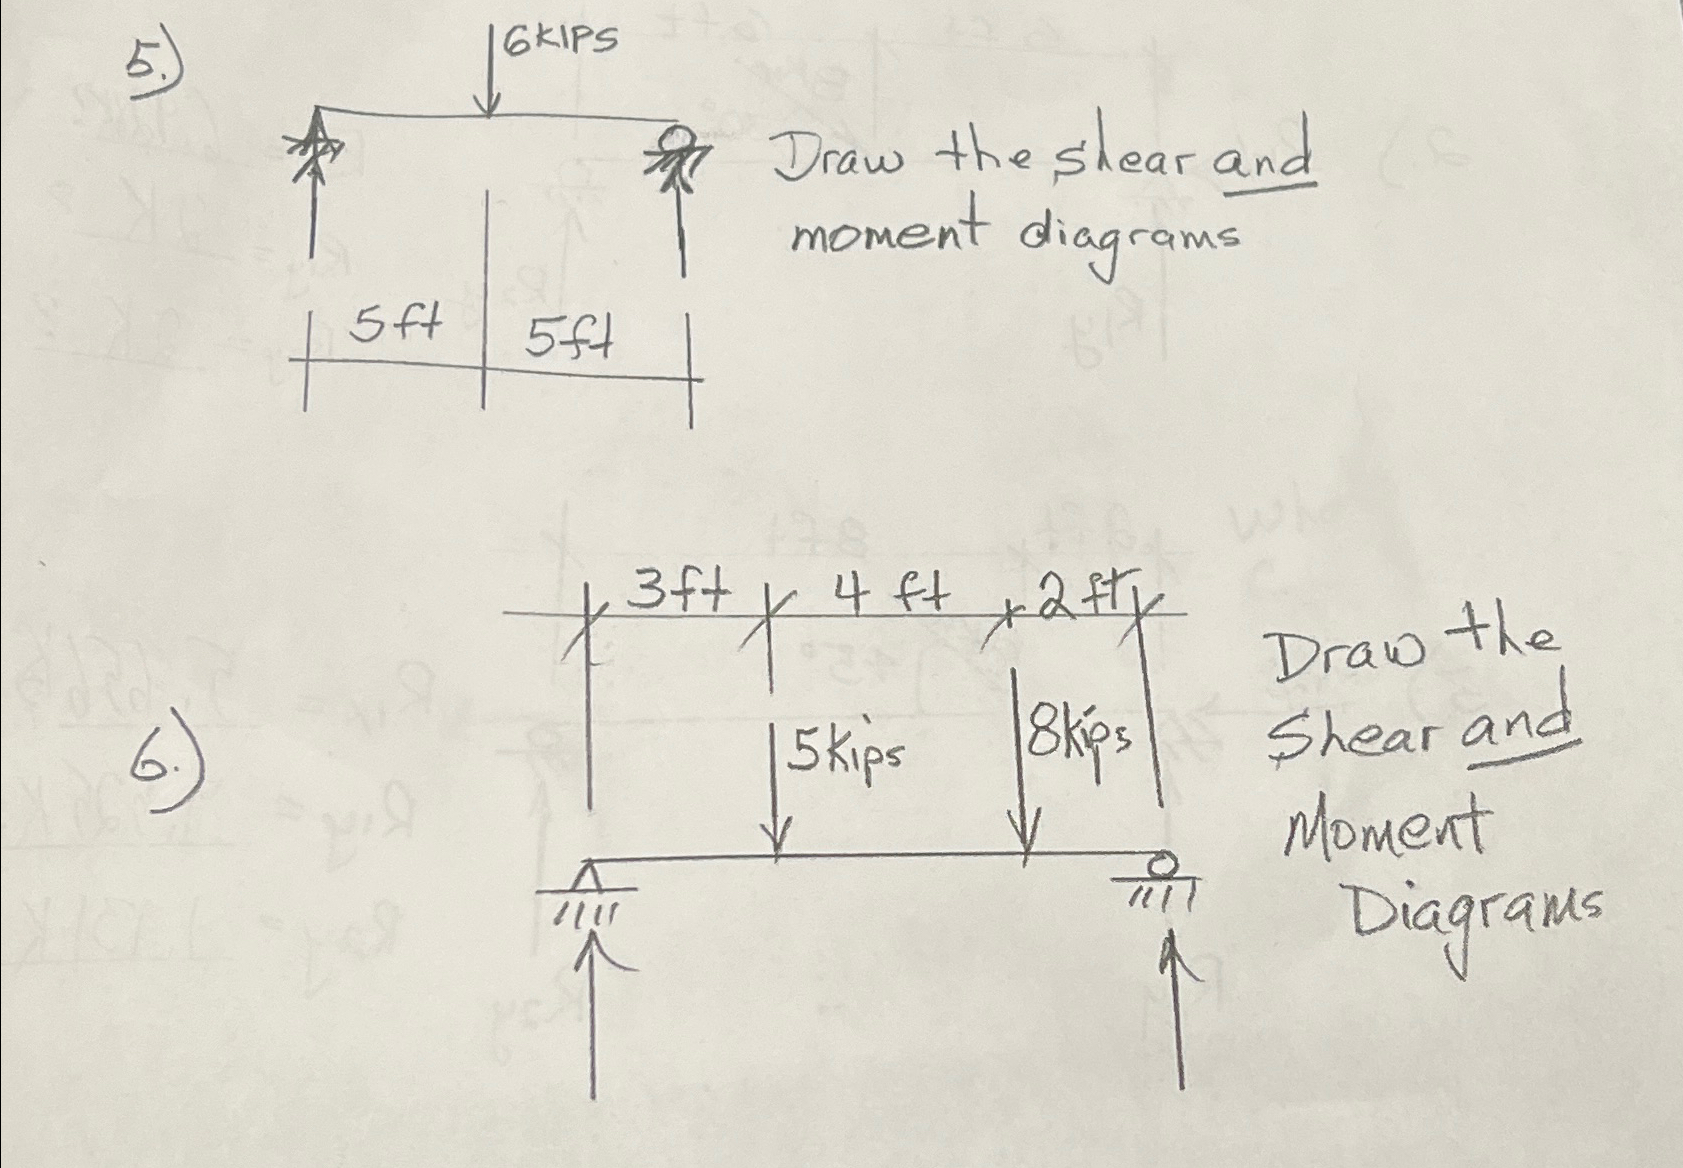 5.)
6KIPS
Draw the shear and
moment diagrams
5ft 5ft
3ft 4 ft 2 ft
6.)
5kips 8kips
Draw the
Shear and
Moment
Diagrams